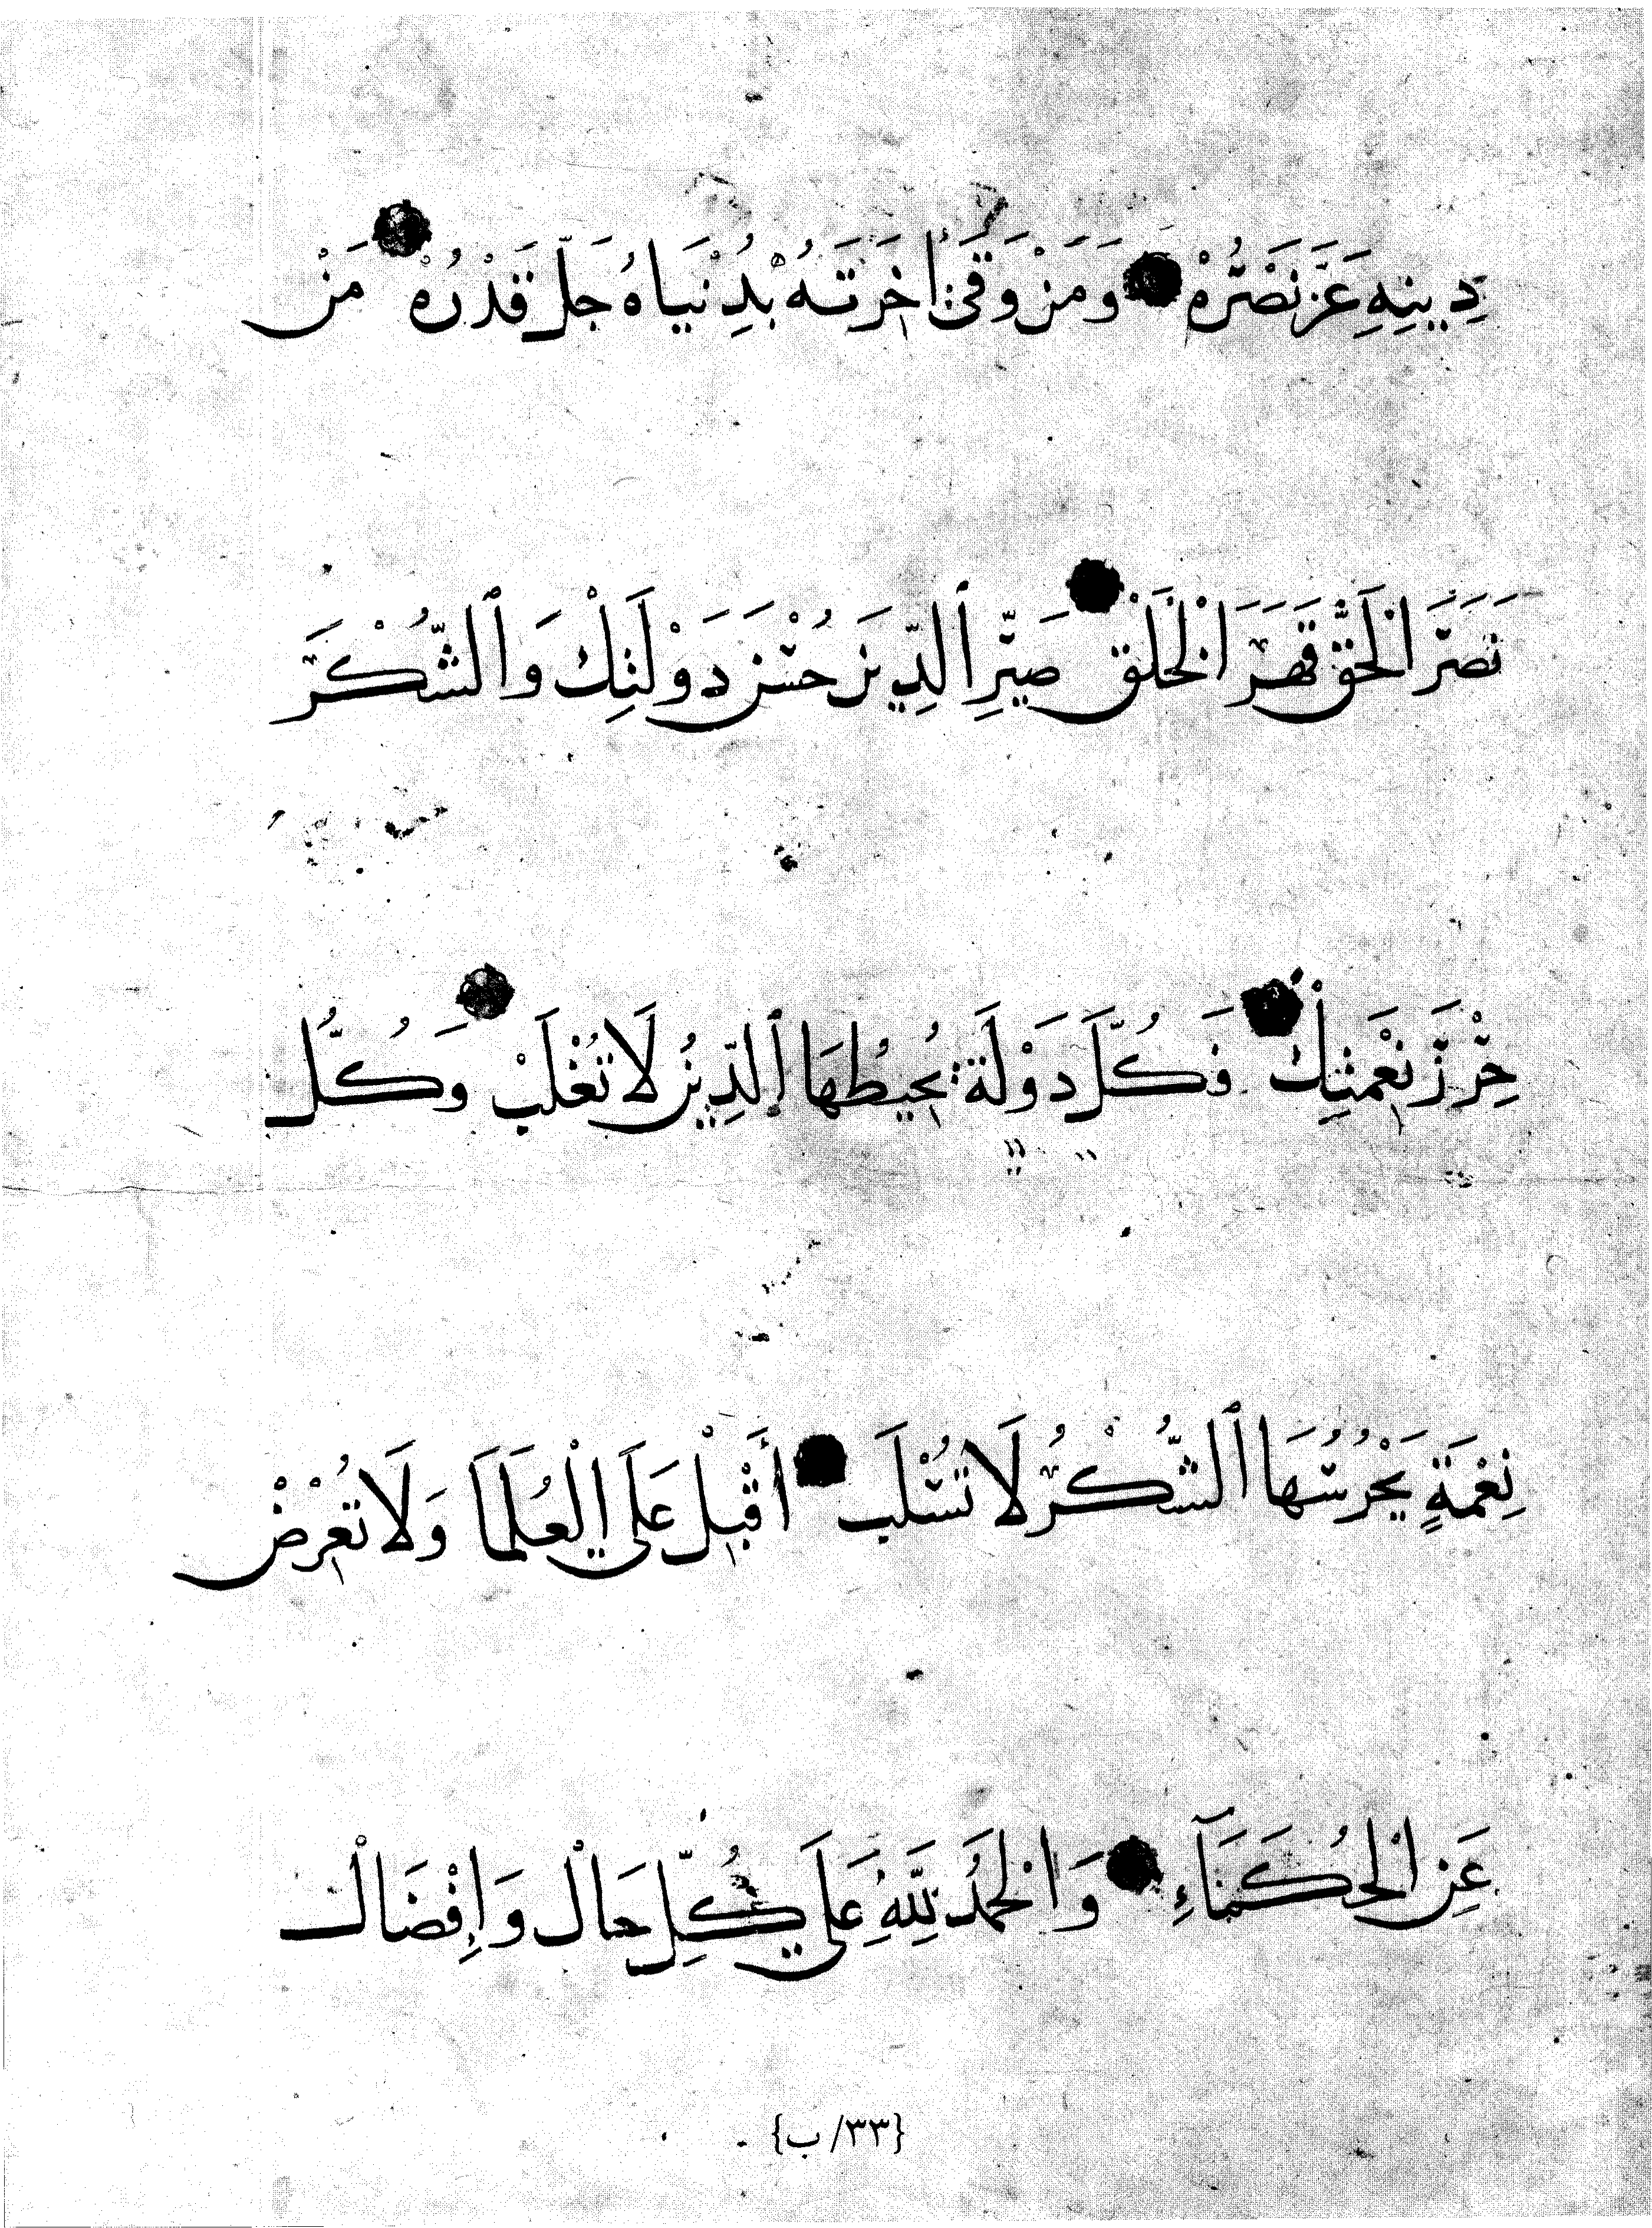 دِينِهِ عَزَّ نَصْرُهْ وَمَنْ وَقَىٰ أخِرَتَهُ بِدُنْيَاهُ جَلَّ قَدْرُهْ مَنْ
نَصَرَ الْحَقَّ قَهَرَ الْخَلْقْ صَيِّرِ ٱلدِّينَ حُصْنَ دَوْلَتِكْ وَٱلشُّكْرَ
حِرْزَ نِعْمَتِكْ فَكُلُّ دَوْلَةٍ يُحِيطُهَا ٱلدِّينُ لَا تُغْلَبْ وَكُلُّ
نِعْمَةٍ يَحْرُسُهَا ٱلشُّكْرُ لَا تُسْلَبْ أَقْبِلْ عَلَى الْعُلَمَا وَلَا تُعْرِضْ
عَنِ الْحُكَمَآءِ وَالْحَمْدُ لِلَّهِ عَلَى كُلِّ حَالْ وَإِفْضَالْ
{٣٣/ب}